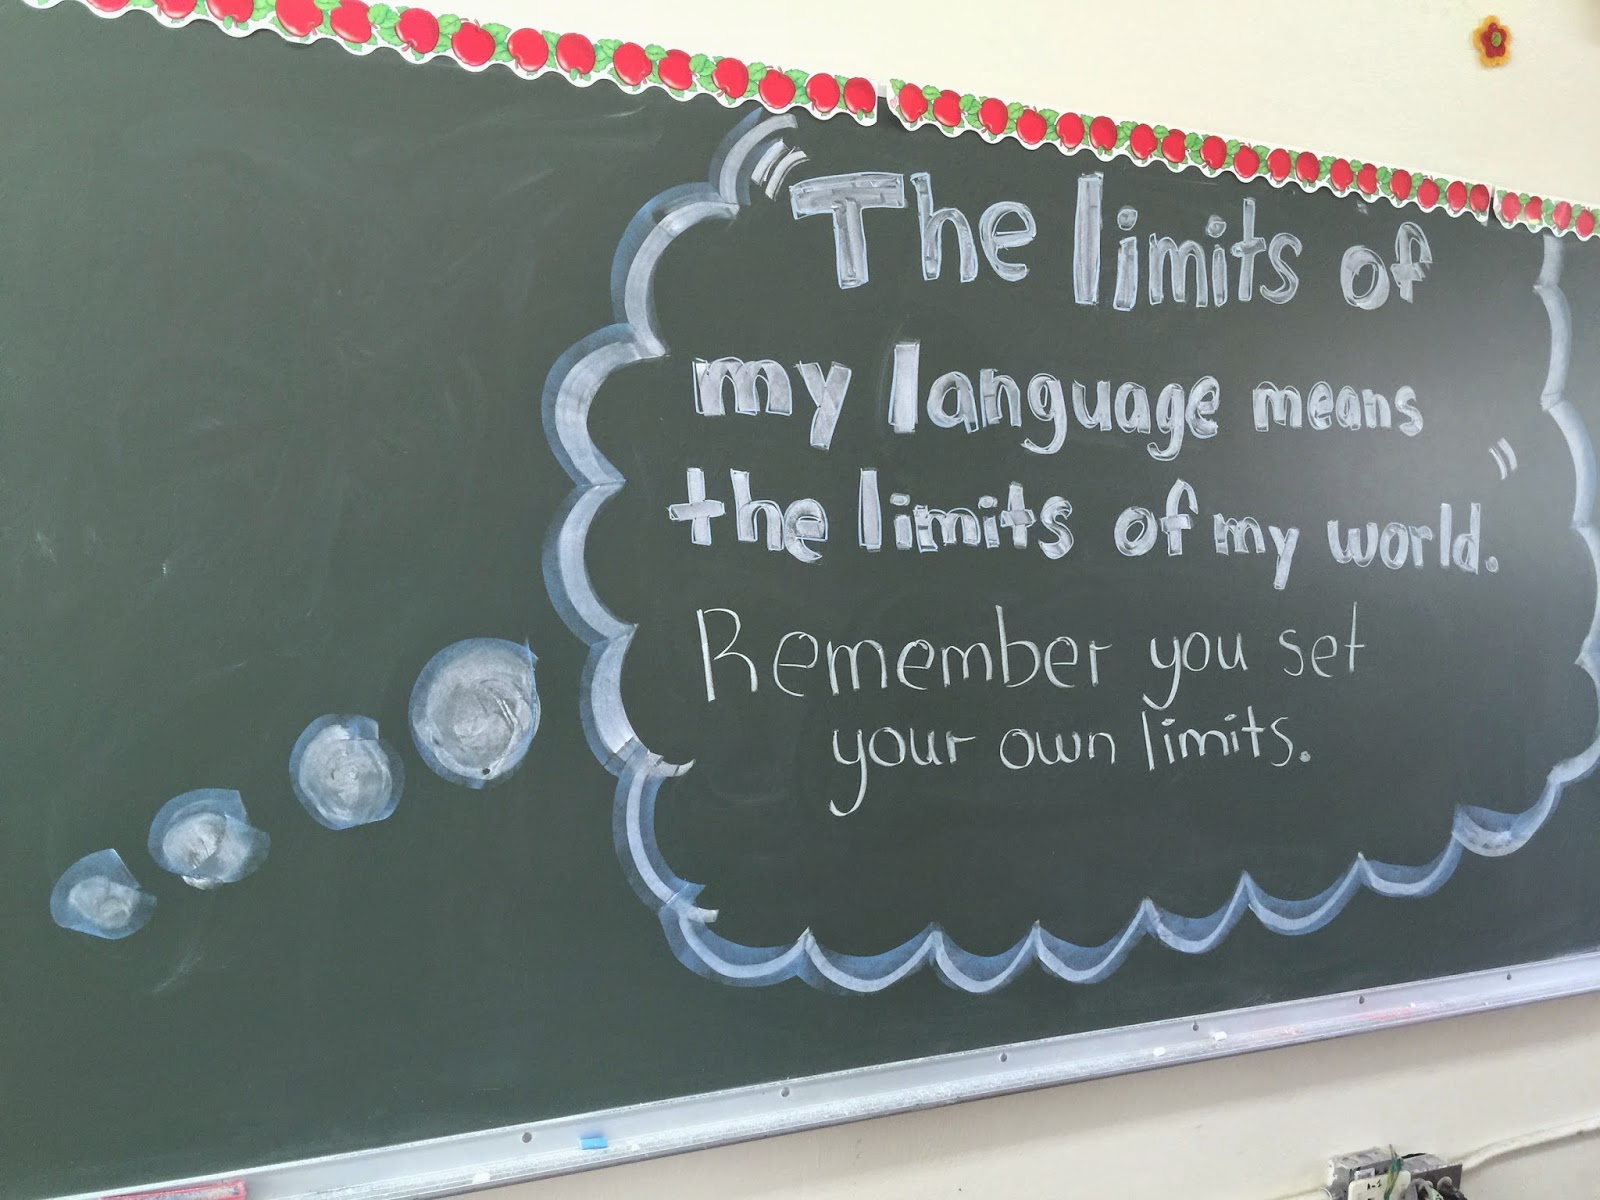 "The limits of
my language means
the limits of my world."
Remember you set
your own limits.